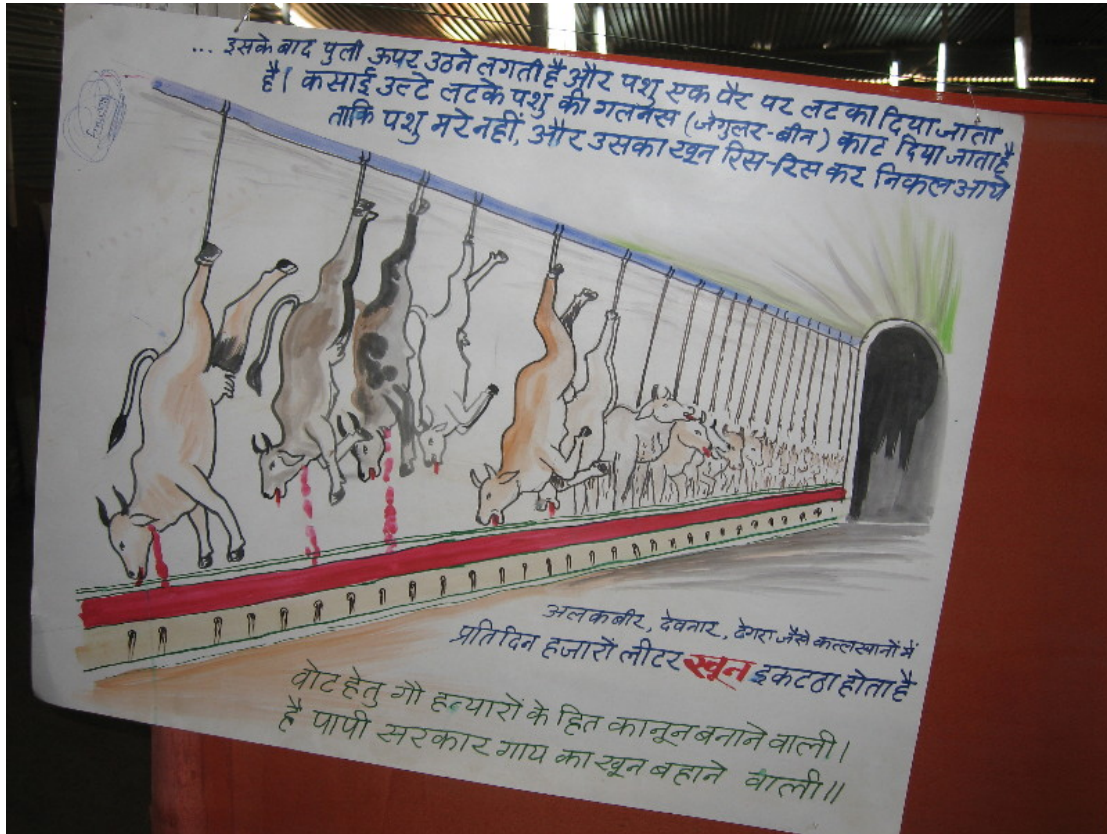 ... इसके बाद पुली ऊपर उठने लगती है और पशु एक पैर पर लटका दिया जाता
है। कसाई उल्टे लटके पशु की गलनस (जेगुलर-बीन) काट दिया जाता है
ताकि पशु मरे नहीं, और उसका खून रिस-रिस कर निकल आये
अलकबीर, देवनार, टेंगरा जैसे कत्लखानों में
प्रतिदिन हजारों लीटर खून इकटठा होता है
वोट हेतु गौ हत्यारों के हित कानून बनाने वाली।
है पापी सरकार गाय का खून बहाने वाली॥